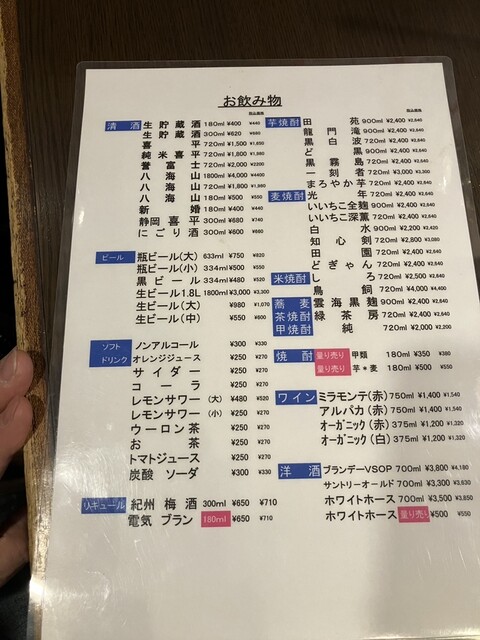 お飲み物
税込価格
清酒 生貯蔵酒 180ml ¥400 ¥440
生貯蔵酒 300ml ¥620 ¥680
喜平 720ml ¥1,500 ¥1,650
純米喜平 720ml ¥1,800 ¥1,980
誉富士 720ml ¥2,000 ¥2200
八海山 1800ml ¥4,000 ¥4400
八海山 720ml ¥1,800 ¥1,980
八海山 180ml ¥500 ¥550
新婚 180ml ¥400 ¥440
静岡喜平 300ml ¥680 ¥740
にごり酒 300ml ¥600 ¥660
ビール 瓶ビール(大) 633ml ¥750 ¥820
瓶ビール(小) 334ml ¥500 ¥550
黒ビール 334ml ¥480 ¥520
生ビール1.8L 1800ml ¥3,000 ¥3,300
生ビール(大) ¥980 ¥1,070
生ビール(中) ¥550 ¥600
ソフトドリンク ノンアルコール ¥300 ¥330
オレンジジュース ¥250 ¥270
サイダー ¥250 ¥270
コーラ ¥250 ¥270
レモンサワー (大) ¥480 ¥520
レモンサワー (小) ¥250 ¥270
ウーロン茶 ¥250 ¥270
お茶 ¥250 ¥270
トマトジュース ¥250 ¥270
炭酸 ソーダ ¥300 ¥330
リキュール 紀州 梅酒 300ml ¥650 ¥710
電気 ブラン 180ml ¥650 ¥710
税込価格
芋焼酎 田苑 900ml ¥2,400 ¥2,640
龍門滝 900ml ¥2,400 ¥2,640
黒白波 720ml ¥2,400 ¥2,640
ど黒 900ml ¥2,400 ¥2,640
黒霧島 720ml ¥2,400 ¥2,640
一刻者 720ml ¥3,000 ¥3,300
まろやか芋 720ml ¥2,400 ¥2,640
麦焼酎 光年 720ml ¥2,400 ¥2,640
いいちこ全麹 900ml ¥2,400 ¥2,640
いいちこ深薫 900ml ¥2,400 ¥2,640
白水 900ml ¥2,200 ¥2,420
知心剣 720ml ¥2,800 ¥3,080
田園 720ml ¥2,400 ¥2,640
どぎゃん 720ml ¥2,400 ¥2,640
米焼酎 しろ 720ml ¥2,500 ¥2,640
鳥飼 720ml ¥4,000 ¥4,400
蕎麦 雲海黒麹 900ml ¥2,400 ¥2,640
茶焼酎 緑茶房 720ml ¥2,400 ¥2,640
甲焼酎 純 720ml ¥2,000 ¥2,200
焼酎 量り売り 甲類 180ml ¥350 ¥380
量り売り 芋*麦 180ml ¥500 ¥550
ワイン ミラモンテ(赤) 750ml ¥1,400 ¥1,540
アルパカ(赤) 750ml ¥1,400 ¥1,540
オーガニック(赤) 375ml ¥1,200 ¥1,320
オーガニック(白) 375ml ¥1,200 ¥1,320
洋酒 ブランデーVSOP 700ml ¥3,800 ¥4,180
サントリーオールド 700ml ¥3,300 ¥3,630
ホワイトホース 700ml ¥3,500 ¥3,850
ホワイトホース 量り売り ¥500 ¥550